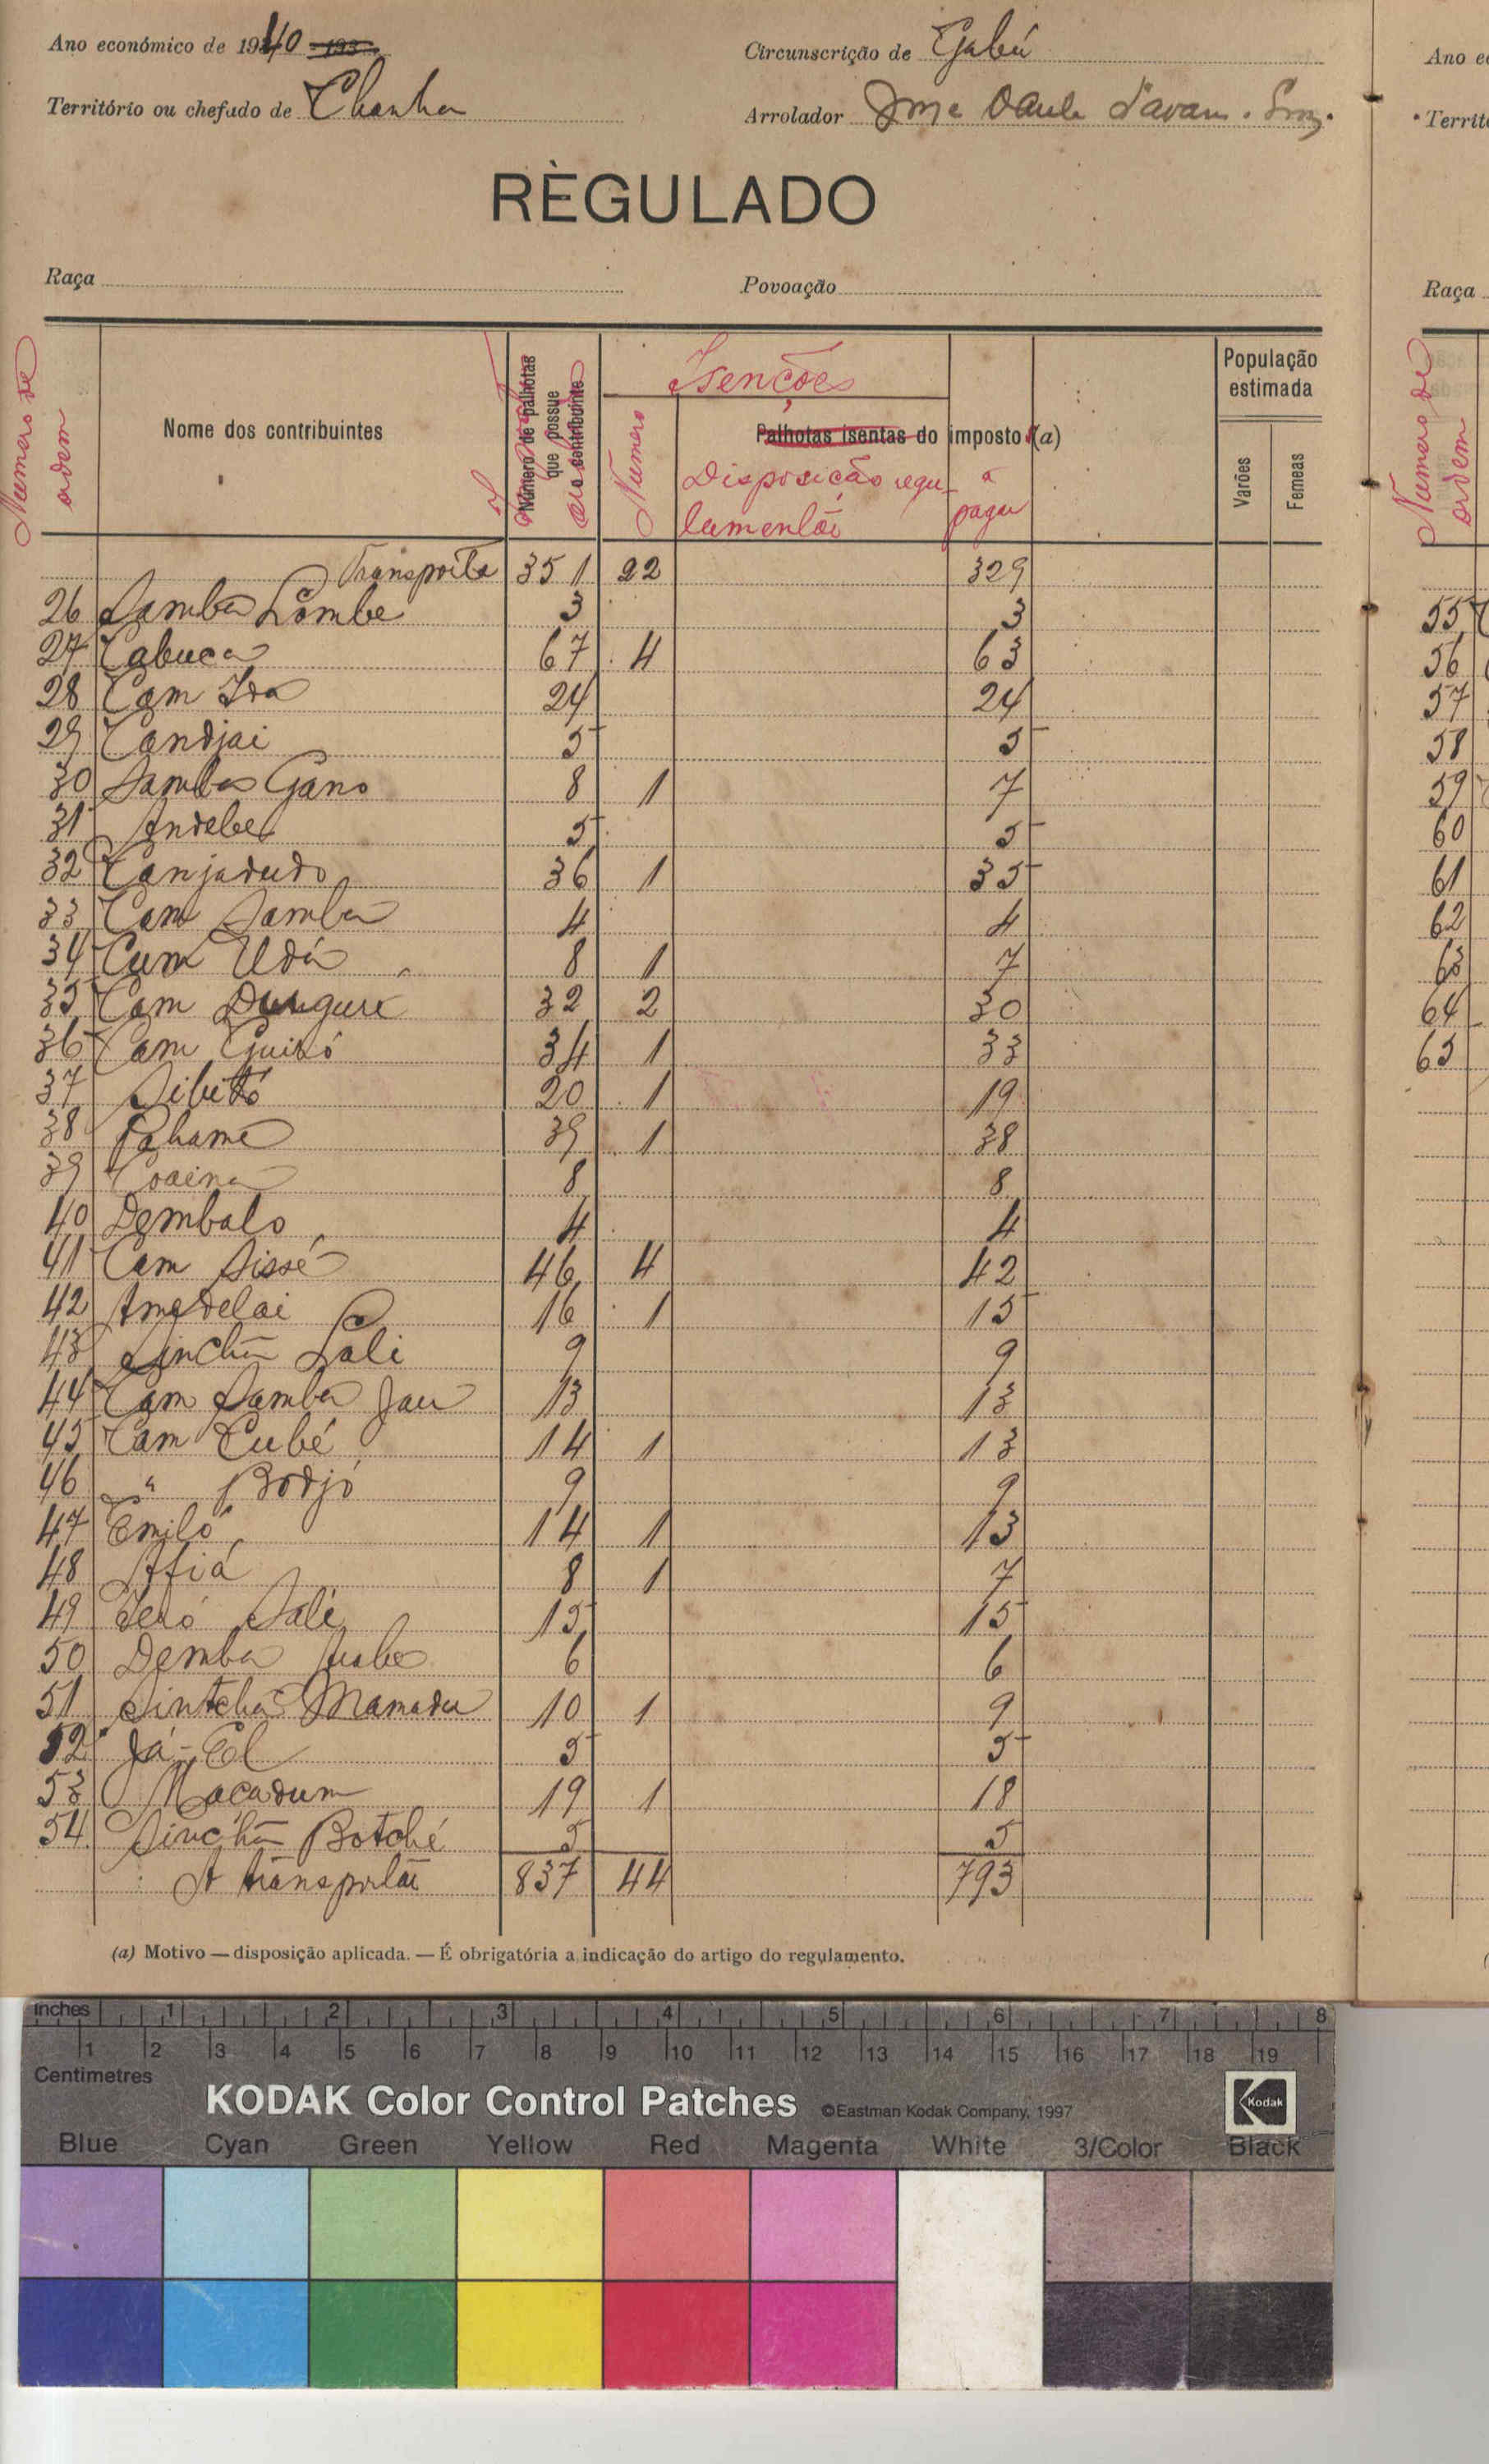 Ano económico de 1940 193
Circunscrição de Gabú
Território ou chefado de Chanha
Arrolador
RÈGULADO
Raça
Povoação
Numero de ordem
Nome dos contribuintes
Número de palhotas que possue o contribuinte
Isenções
Numero
Palhotas isentas do imposto (a)
Disposicão regulamentar
a pagar
População estimada
Varões
Femeas
Transporte 351 22 329
26 Samba Lombe 3 3
27 Cabuca 67 4 63
28 Cam Ida 24 24
29 Candjai 5 5
30 Samba Gano 8 1 7
31 Andebe 5 5
32 Canjadudo 36 1 35
33 Cam Samba 4 4
34 Cam Udá 8 1 7
35 Cam Dungure 32 2 30
36 Cam Guiró 34 1 33
37 Sibitó 20 1 19
38 Pahame 39 1 38
39 Coaina 8 8
40 Dembalo 4 4
41 Cam Sissé 46 4 42
42 Amedelai 16 1 15
43 Sinchã Lali 9 9
44 Cam Samba Jau 13 13
45 Cam Cubé 14 1 13
46 " Bodjó 9 9
47 Emiló 14 1 13
48 Afiá 8 1 7
49 Seló Sali 15 15
50 Demba 6 6
51 Sintchã Mamadu 10 1 9
52 Já-El 5 5
53 Macadum 19 1 18
54 Sinchã Botché 5 5
A transportar 837 44 793
(a) Motivo — disposição aplicada. — É obrigatória a indicação do artigo do regulamento.
Ano e
Territ
Raça
Numero de ordem
55
56
57
58
59
60
61
62
63
64
65
inches 1 2 3 4 5 6 7 8
1 2 3 4 5 6 7 8 9 10 11 12 13 14 15 16 17 18 19
Centimetres
KODAK Color Control Patches ©Eastman Kodak Company, 1997 Kodak
Blue Cyan Green Yellow Red Magenta White 3/Color Black